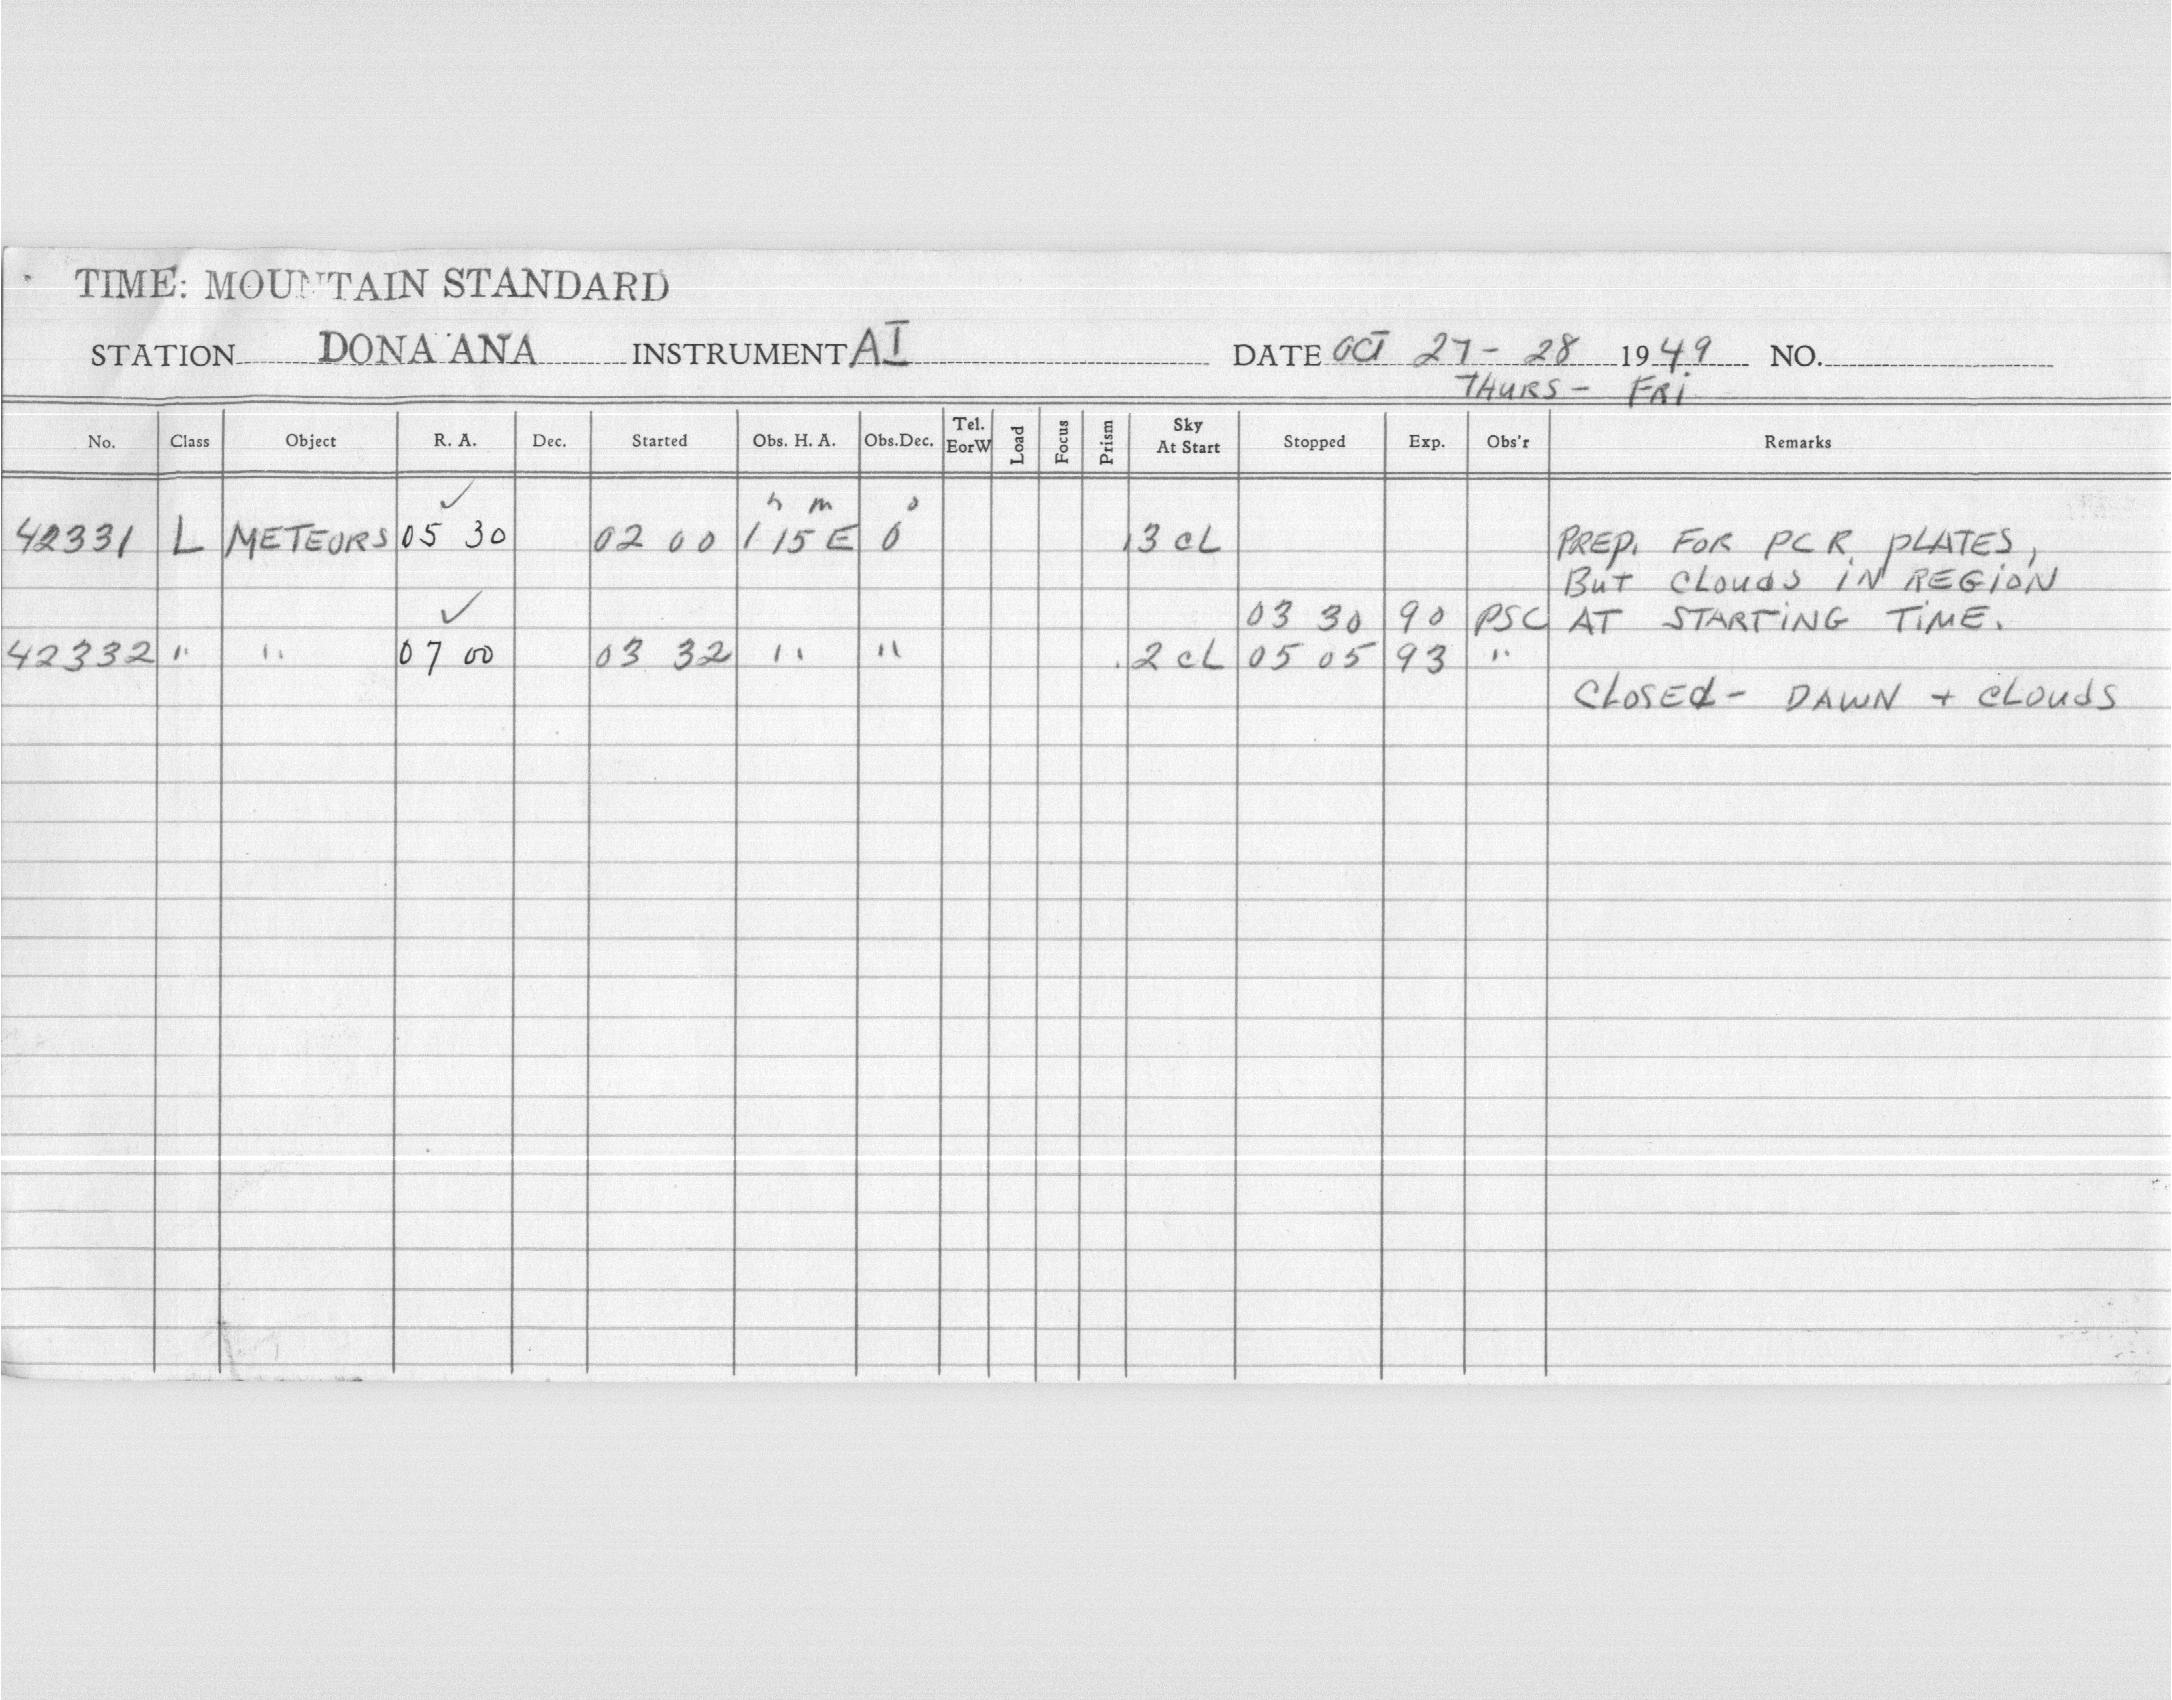 TIME: MOUNTAIN STANDARD
STATION DONA ANA INSTRUMENT AI DATE OCT 27 - 28 1949 NO.
THURS - FRI
No. Class Object R. A. Dec. Started Obs. H. A. Obs.Dec. Tel. EorW Load Focus Prism Sky At Start Stopped Exp. Obs'r Remarks
✓ h m o
42331 L METEORS 05 30 02 00 1 15 E 0 .3 cL PREP. FOR PCR PLATES,
But CLouds iN REGION
✓ 03 30 90 PSC AT STARTiNG TiME.
42332 " " 07 00 03 32 " " .2 cL 05 05 93 "
CLOSEd - DAWN + cLoudS